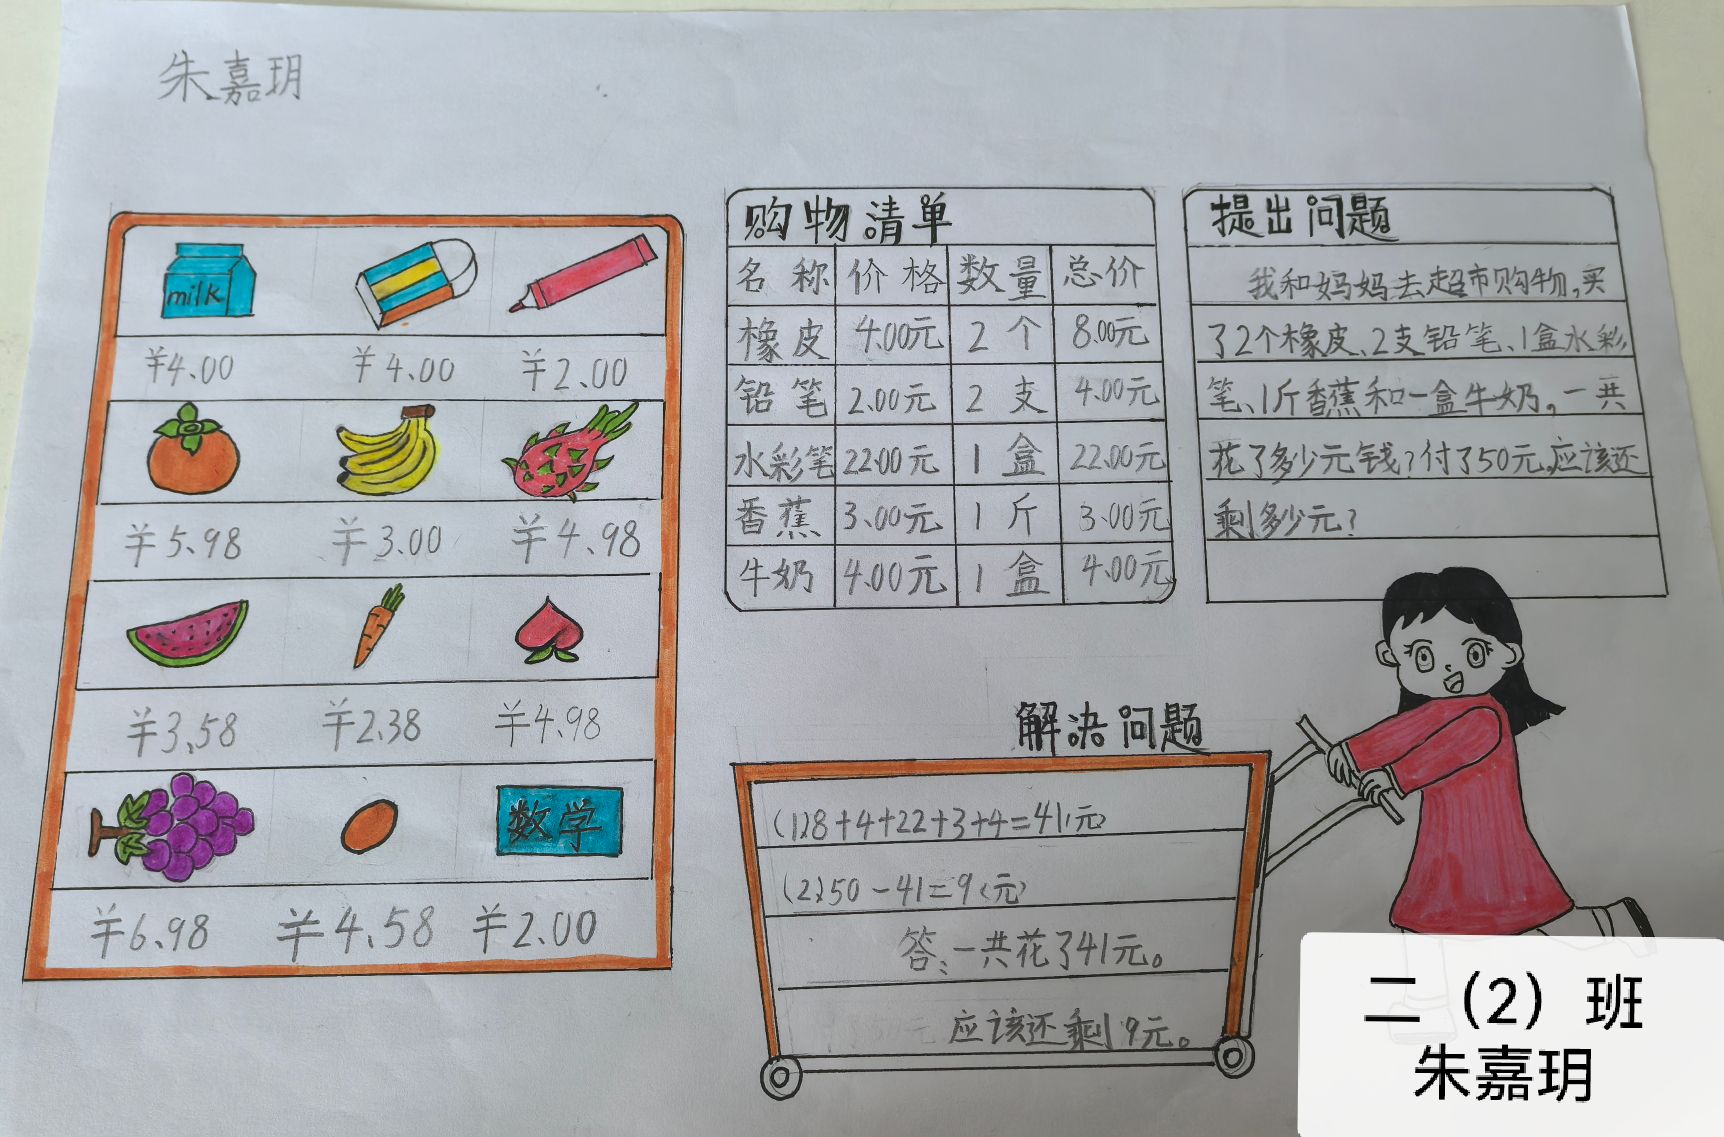 朱嘉玥
milk
¥4.00 ¥4.00 ¥2.00
¥5.98 ¥3.00 ¥4.98
¥3.58 ¥2.38 ¥4.98
数学
¥6.98 ¥4.58 ¥2.00
购物清单
名称 价格 数量 总价
橡皮 4.00元 2个 8.00元
铅笔 2.00元 2支 4.00元
水彩笔 22.00元 1盒 22.00元
香蕉 3.00元 1斤 3.00元
牛奶 4.00元 1盒 4.00元
提出问题
我和妈妈去超市购物,买
了2个橡皮、2支铅笔、1盒水彩
笔、1斤香蕉和一盒牛奶。一共
花了多少元钱?付了50元,应该还
剩多少元?
解决问题
(1)8+4+22+3+4=41(元)
(2)50-41=9(元)
答:一共花了41元。
应该还剩9元。
二（2）班
朱嘉玥